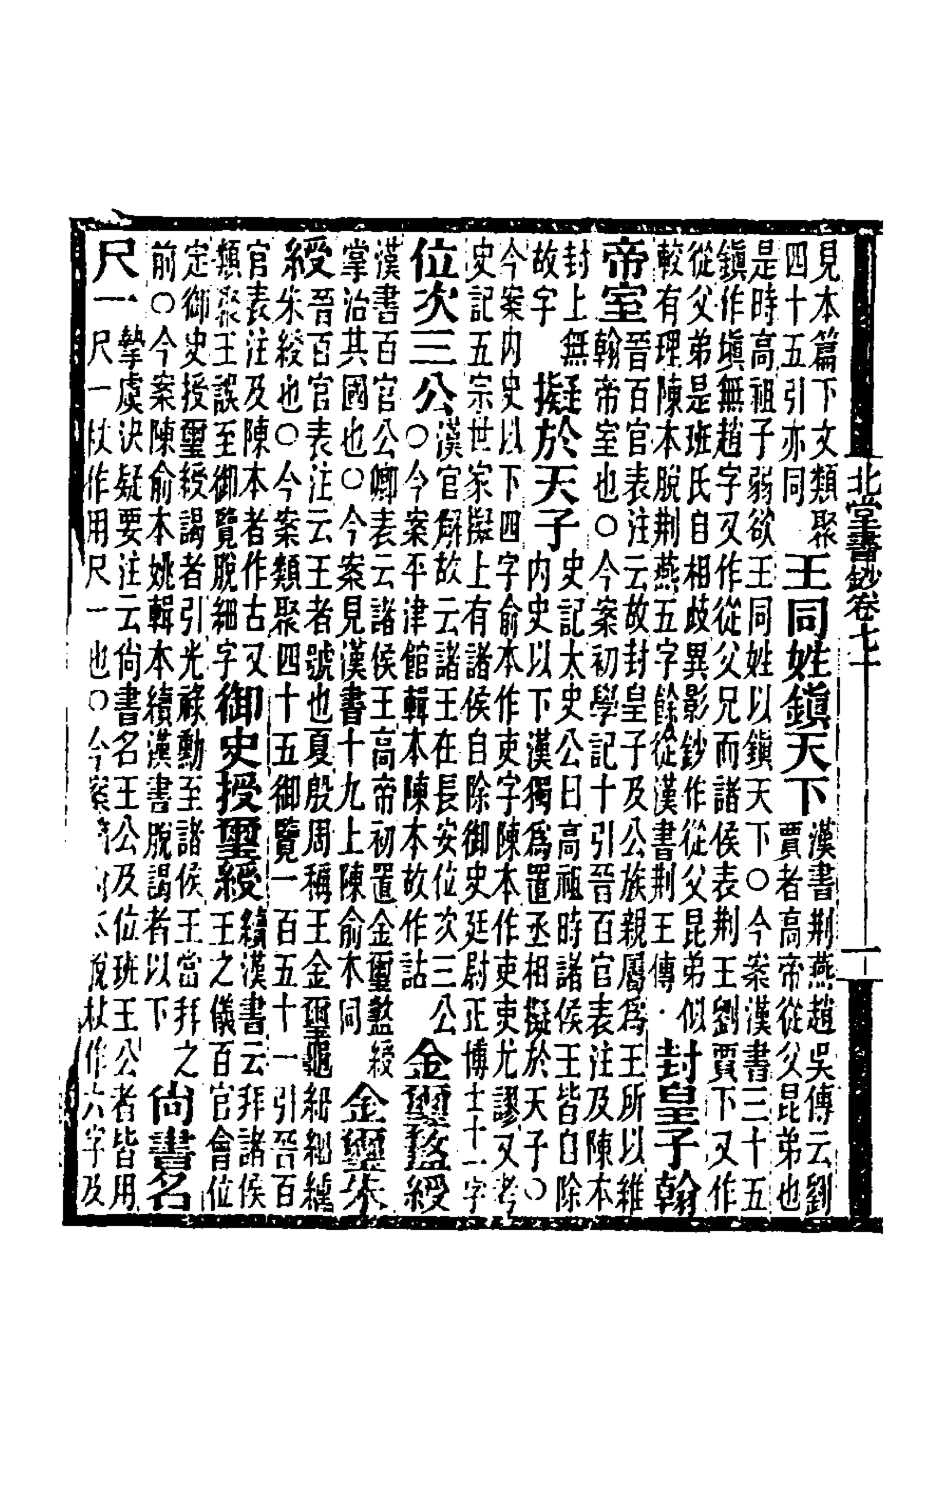 北堂書鈔卷七十
見本篇下文類聚
四十五引亦同
王同姓鎮天下
漢書荆燕趙吳傳云劉
賈者高帝從父昆弟也
是時高祖子弱欲王同姓以鎮天下○今案漢書三十五
鎮作塡無趙字又作從父兄而諸侯表荆王劉賈下又作
從父弟是班氏自相歧異影鈔作從父昆弟似
較有理陳本脫荆燕五字餘從漢書荆王傳
封皇子翰
帝室
晉百官表注云故封皇子及公族親屬爲王所以維
翰帝室也○今案初學記十引晉百官表注及陳本
封上無
故字
擬於天子
史記太史公曰高祖時諸侯王皆自除
內史以下漢獨爲置丞相擬於天子○
今案內史以下四字俞本作吏字陳本作吏吏尤謬又考
史記五宗世家擬上有諸侯自除御史廷尉正博士十一字
位次三公
漢官解故云諸王在長安位次三公
○今案平津館輯本陳本故作詁
金璽盭綬
漢書百官公卿表云諸侯王高帝初置金璽盭綬
掌治其國也○今案見漢書十九上陳俞本同
金璽朱
綬
晉百官表注云王者號也夏殷周稱王金璽龜紐細纁
朱綬也○今案類聚四十五御覽一百五十一引晉百
官表注及陳本者作古又
類聚王誤至御覽脫細字
御史授璽綬
續漢書云拜諸侯
王之儀百官會位
定御史授璽綬謁者引光祿勳至諸侯王當拜之
前○今案陳俞本姚輯本續漢書脫謁者以下
尚書名
尺一
摯虞決疑要注云尚書名王公及位班王公者皆用
尺一尺一杖作用尺一也○今案 本脫杖作六字及